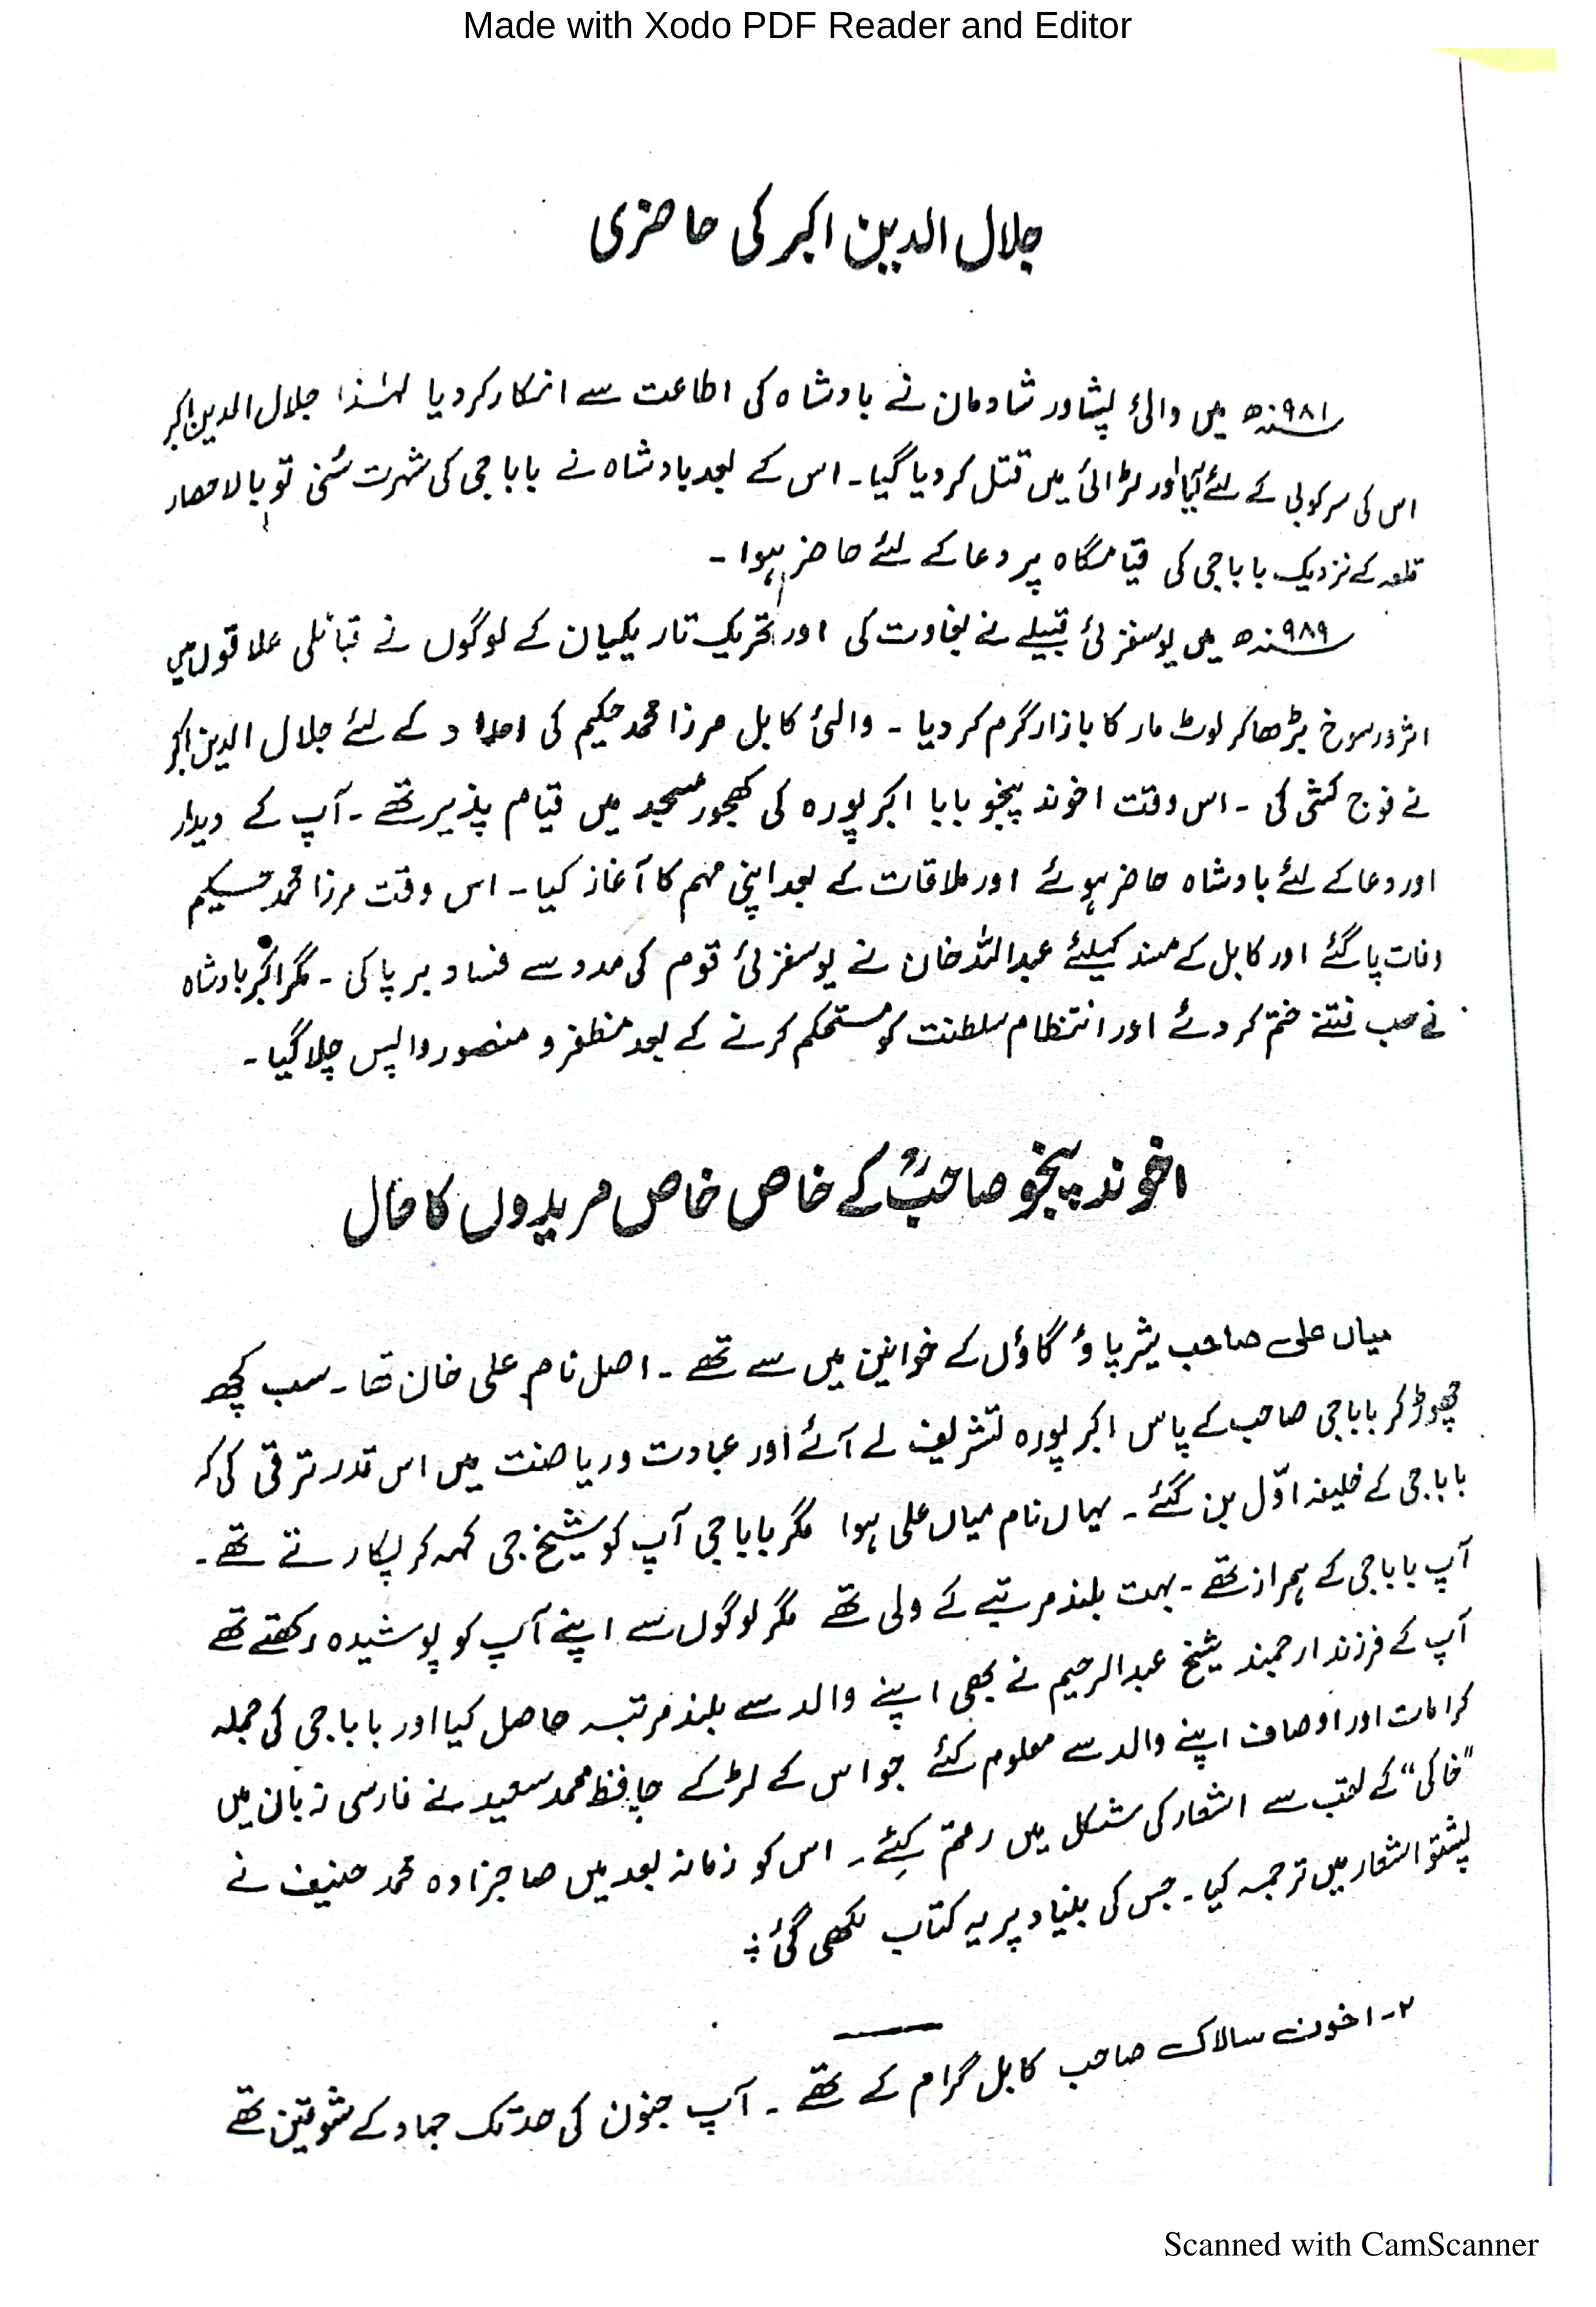 Made with Xodo PDF Reader and Editor
جلال الدین اکبر کی حاضری
۹۸۱ سنہ ھ میں والئ پشاور شادمان نے بادشاہ کی اطاعت سے انکار کر دیا لہٰذا جلال الدین اکبر
اس کی سرکوبی کے لئے آیا اور لڑائی میں قتل کر دیا گیا۔ اس کے بعد بادشاہ نے بابا جی کی شہرت سُنی تو بالا حصار
قلعہ کے نزدیک بابا جی کی قیامگاہ پر دعا کے لئے حاضر ہوا ۔
۹۸۹ سنہ ھ میں یوسفزئی قبیلے نے بغاوت کی اور تحریک تاریکیان کے لوگوں نے قبائلی علاقوں میں
اثر ورسوخ بڑھا کر لوٹ مار کا بازار گرم کر دیا ۔ والئ کابل مرزا محمد حکیم کی امداد کے لئے جلال الدین اکبر
نے فوج کشی کی ۔ اس وقت اخوند پنجو بابا اکبر پورہ کی کھجور مسجد میں قیام پذیر تھے ۔ آپ کے دیدار
اور دعا کے لئے بادشاہ حاضر ہوئے اور ملاقات کے بعد اپنی مہم کا آغاز کیا ۔ اس وقت مرزا محمد حکیم
وفات پا گئے اور کابل کے مسند کیلئے عبداللہ خان نے یوسفزئی قوم کی مدد سے فساد برپا کی ۔ مگر اکبر بادشاہ
نے سب فتنے ختم کر دئے اور انتظام سلطنت کو مستحکم کرنے کے بعد مظفر و منصور واپس چلا گیا ۔
اخوند پنجو صاحبؒ کے خاص خاص مریدوں کا حال
میاں علی صاحب شیرپاؤ گاؤں کے خوانین میں سے تھے ۔ اصل نام علی خان تھا ۔ سب کچھ
چھوڑ کر بابا جی صاحب کے پاس اکبر پورہ تشریف لے آئے اور عبادت و ریاضت میں اس قدر ترقی کی کہ
بابا جی کے خلیفہ اوّل بن گئے ۔ یہاں نام میاں علی ہوا مگر بابا جی آپ کو شیخ جی کہہ کر پکارتے تھے ۔
آپ بابا جی کے ہمراز تھے ۔ بہت بلند مرتبے کے ولی تھے مگر لوگوں سے اپنے آپ کو پوشیدہ رکھتے تھے
آپ کے فرزند ارجمند شیخ عبدالرحیم نے بھی اپنے والد سے بلند مرتبہ حاصل کیا اور بابا جی کی جملہ
کرامات اور اوصاف اپنے والد سے معلوم کئے جو اس کے لڑکے حافظ محمد سعید نے فارسی زبان میں
"خاکی" کے لقب سے اشعار کی شکل میں رقم کیئے ۔ اس کو زمانہ بعد میں صاحبزادہ محمد حنیف نے
پشتو اشعار میں ترجمہ کیا ۔ جس کی بنیاد پر یہ کتاب لکھی گئی :
۲۔ اخوند سالاک صاحب کابل گرام کے تھے ۔ آپ جنون کی حد تک جہاد کے شوقین تھے
Scanned with CamScanner